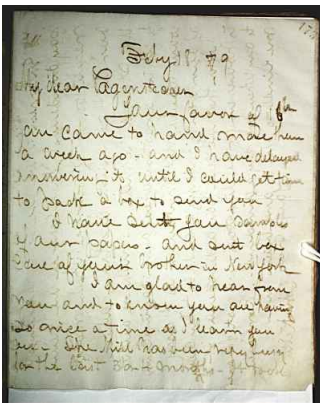 Feby 18 79
My dear
Your favor of 6th
an came to hand more than
a week ago - and I have delayed
answering it, until I could get time
to pack a box to send you
I have sent you samples
of our papers - and sent box
care of your broker in New York
I am glad to hear from
you and to know you are having
so nice a time as I learn you
The Mill has been very busy
for the last 3 or 4 months -